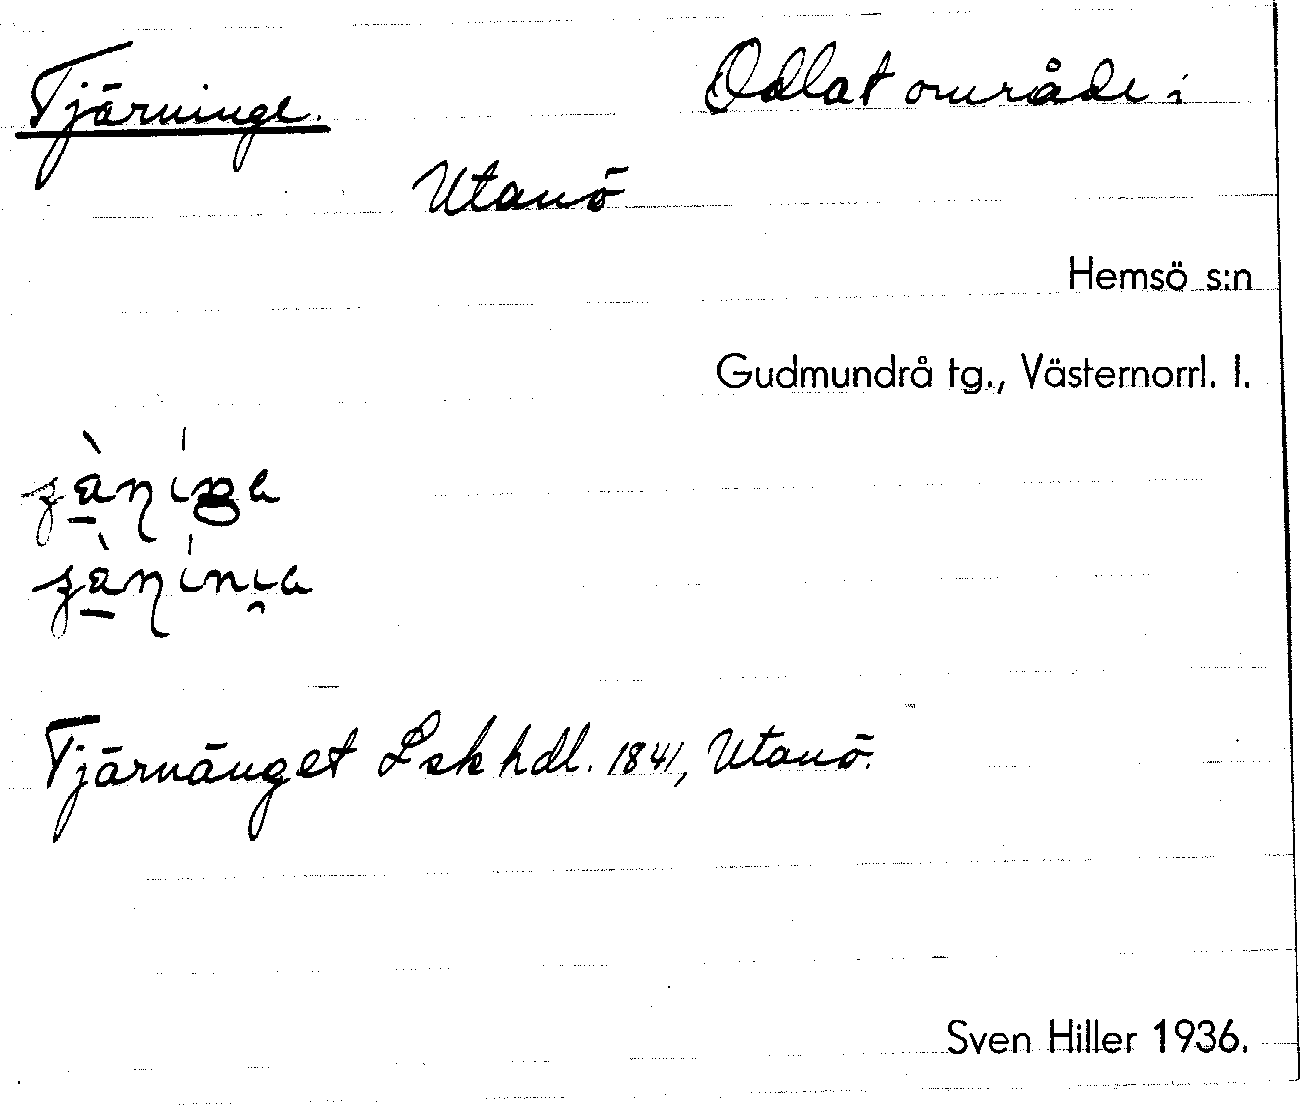 Tjärninge. Odlat område i
Utanö
Hemsö s:n
Gudmundrå tg., Västernorrl. l.
Tjärnänget Lskhdl. 1841, Utanö.
Sven Hiller 1936.